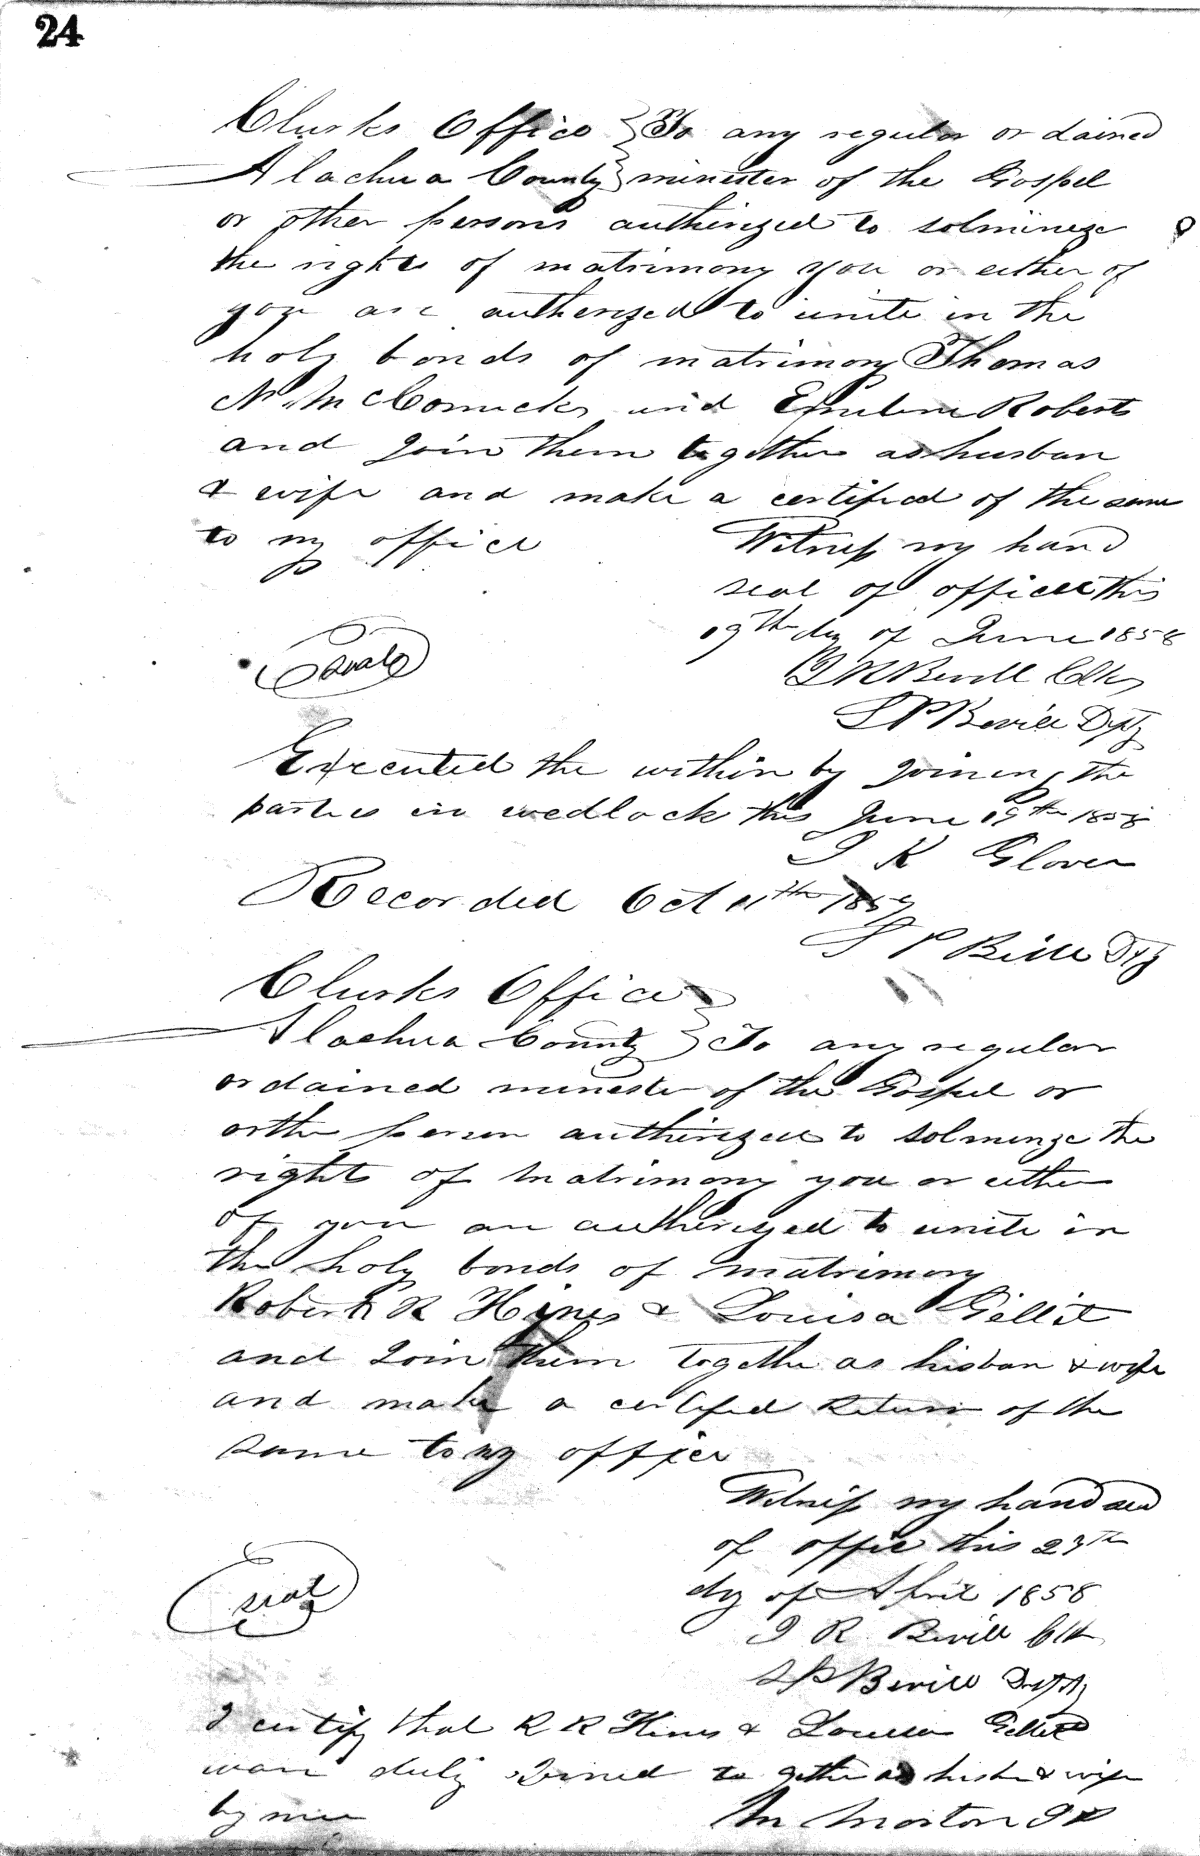 24
Clurks Office } To any regular or dained
Alachua County } minester of the Gospel
or other persons autherized to solminize
the rights of matrimony you or either of
you are autherized to unite in the
holy bonds of matrimony Thomas
N. McCormick and Emiline Roberts
and Join them together as husban
& wife and make a certified of the same
to my office Witness my hand
seal of office this
19th day of June 1858
Seal J R Bevill Clk
S P Bevill Dpty
Executed the within by joineng the
parties in wedlock this June 19th 1858
J K Glover
Recorded Oct 11th
S P Bevill Dpty
Clurks Office
Alachua County } To any regular
ordained minester of the Gospel or
orther person autherized to solmenze the
rights of matrimony you or either
of you are autherized to unite in
the holy bonds of matrimony
Robert R Hines & Louisa Gellit
and Join them together as hisban & wife
and make a certified Return of the
same to my office
Witness my hand seal
of office this 23th
dy of April 1858
seal J R Bevill Clk
S P Bevill Depty
I certify that R R Hines & Louisa Gellet
ware duly Joined to gether as husban & wife
by mee Wm Morton J P